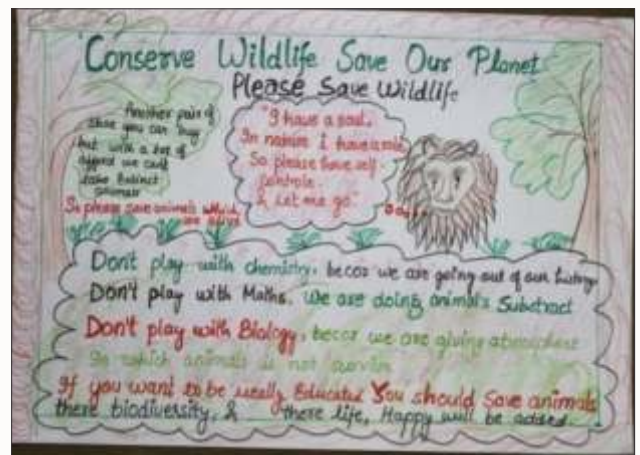 Conserve Wildlife Save Our Planet
Please Save Wildlife
Another pair of
shoe you can buy
but with a lot of
we can't
Extinct
animals
So please save animals which
are alive
"I have a soul,
In nature I have a role
So please have self
controle
& Let me go."
Don't play with chemistry, becoz we are going out of our history
Don't play with Maths, we are doing animals Substract
Don't play with Biology, becoz we are giving atmosphere
In which animals is not
If you want to be really Educated You should Save animals
there biodiversity, & there life, Happy will be added